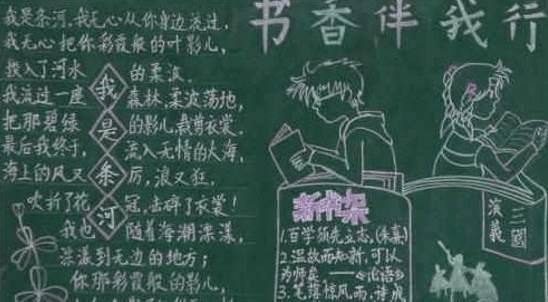 书香伴我行
我是条河
我是条河,我无心从你身边流过,
我无心把你彩霞般的叶影儿,
揉入了河水的柔波。
我流过一座森林,柔波荡地,
把那碧绿的影儿裁剪衣裳。
最后我终于,流入无情的大海,
海上的风又厉,浪又狂,
吹折了花冠,击碎了衣裳!
我也随着海潮漂漾,
漾漾到无边的地方;
你那彩霞般的影儿,
新书架
1.百学须先立志,(朱熹)
2.温故而知新,可以
为师矣——《论语》
3.笔落惊风雨,诗成
三國
演義